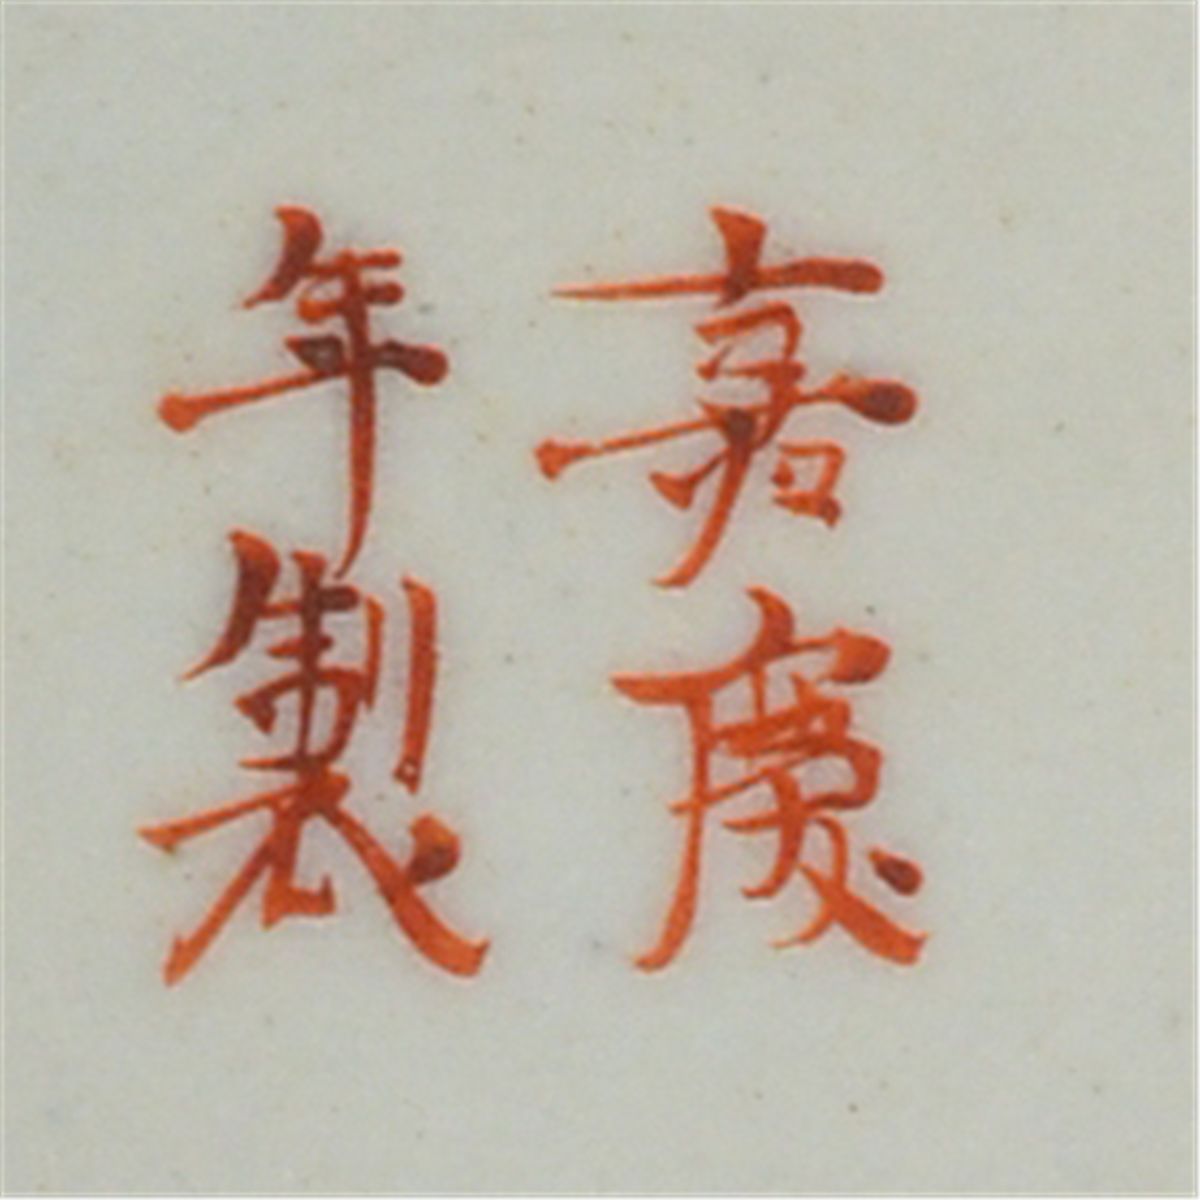 嘉慶
年製